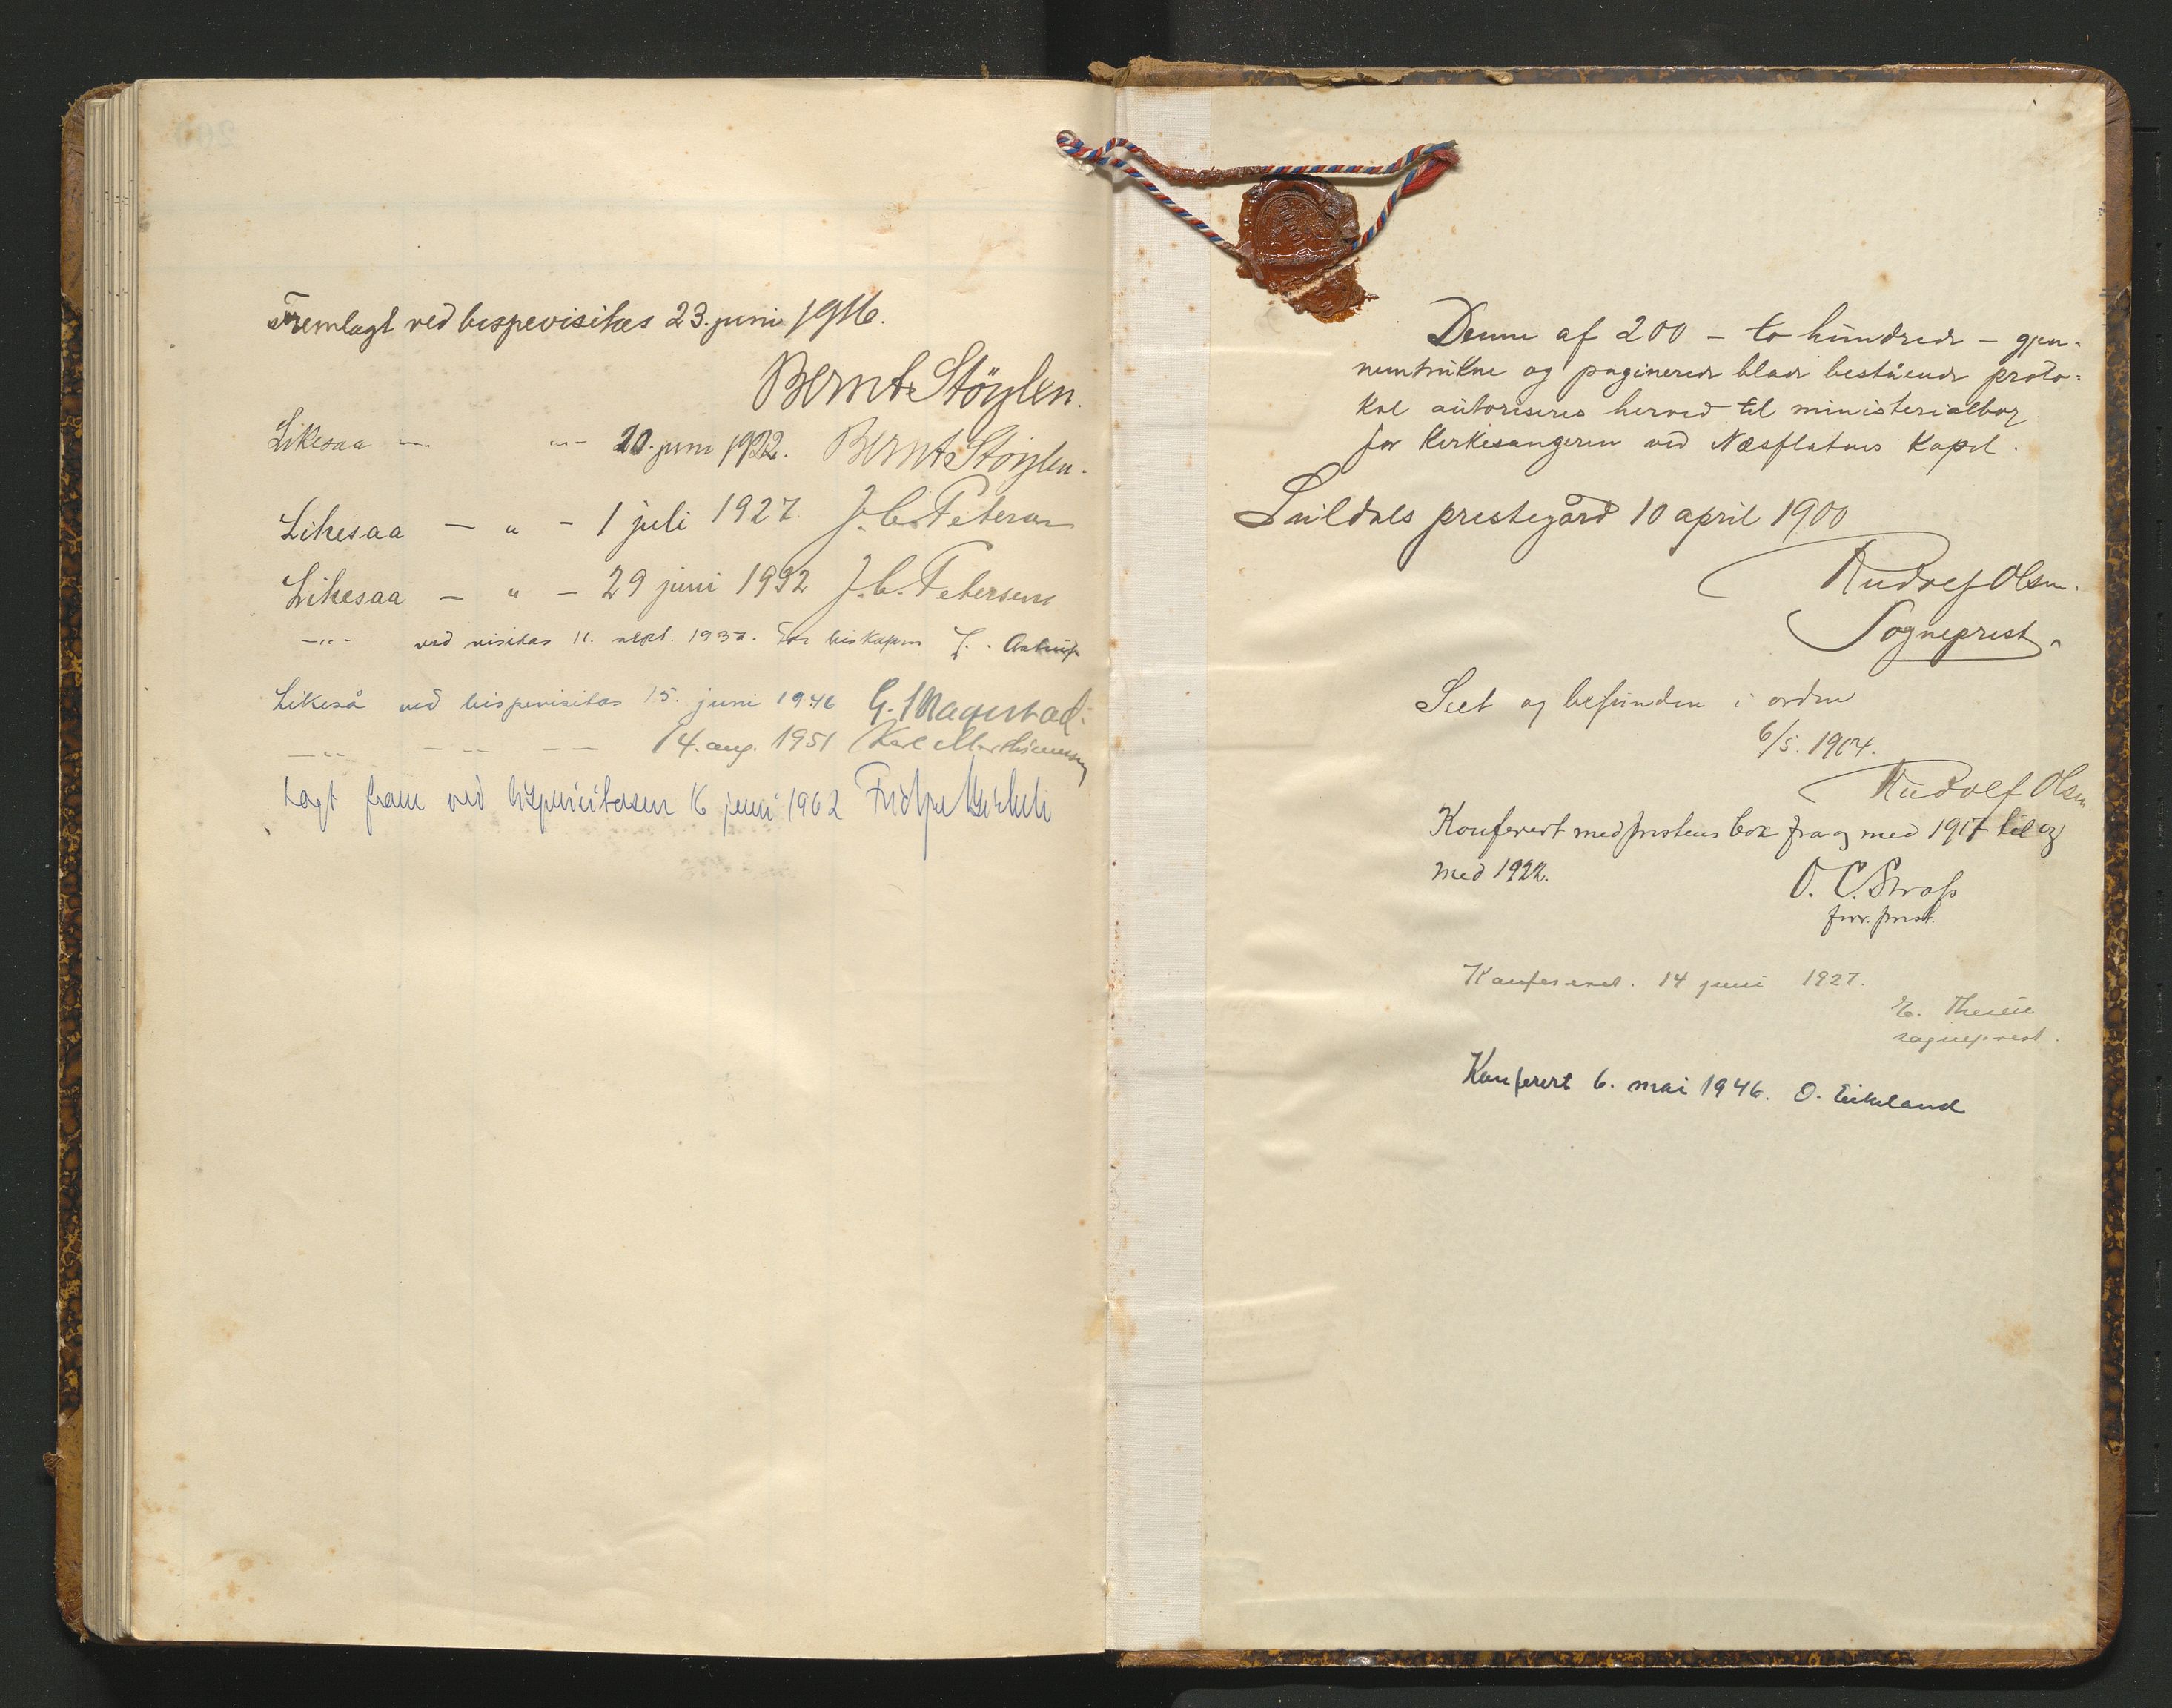 Fremlagt ved bispevisitas 23. juni 1916.
Bernt Støylen.
Likesaa — " — 20. juni 1922. Bernt Støylen.
Likesaa — " — 1 juli 1927 J. C. Petersen
Likesaa — " — 29 juni 1932 J. C. Petersen
— " — ved visitas 11. sept. 1937. For biskopen Astrup
Likeså ved bispevisitas 15. juni 1946 G. Skagestad.
— " — — " — — — 14. aug. 1951 Karl Marthinussen
Lagt fram ved bispevisitasen 16 juni 1962 Fridtjov Birkeli
Denne af 200 – to hundrede – gjen-
nemtrukne og paginerede blade bestående proto-
kol autoriseres herved til ministerialbog
for kirkesangeren ved Næsflatens kapel.
Suldals prestegård 10 april 1900
Rudolf Olsen.
Sogneprest.
Seet og befunden i orden
6/5. 1904.
Rudolf Olsen
Konferert med prestens bok fra og med 1917 til og
med 1922.
O. C.
prest.
Konferert. 14 juni 1927.
E.
sogneprest.
Konferert 6. mai 1946. O. Eikeland